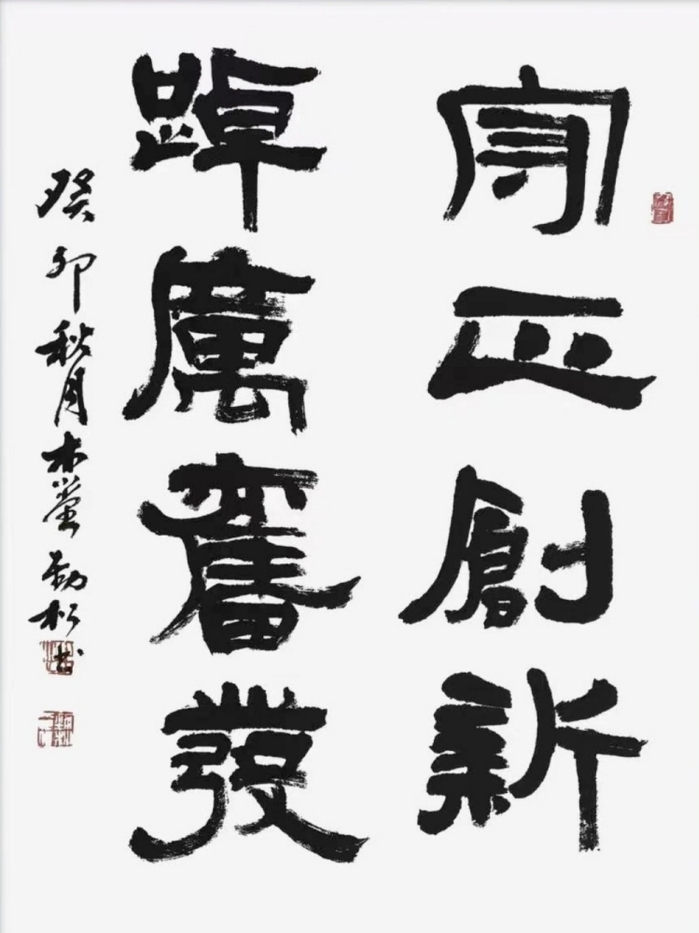 守正創新
踔厲奮發
癸卯秋月木瑩勁松书